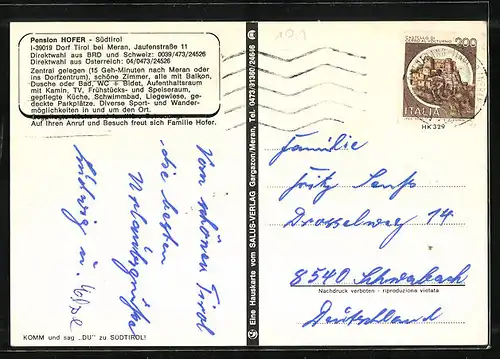 Pension HOFER - Südtirol
I-39019 Dorf Tirol bei Meran, Jaufenstraße 11
Direktwahl aus BRD und Schweiz: 0039/473/24526
Direktwahl aus Österreich: 04/0473/24526
Zentral gelegen (15 Geh-Minuten nach Meran oder
ins Dorfzentrum), schöne Zimmer, alle mit Balkon,
Dusche oder Bad, WC + Bidet, Aufenthaltsraum
mit Kamin, TV, Frühstücks- und Speiseraum,
gepflegte Küche, Schwimmbad, Liegewiese, ge-
deckte Parkplätze. Diverse Sport- und Wander-
möglichkeiten in und um den Ort.
Auf Ihren Anruf und Besuch freut sich Familie Hofer.
Vom schönen Tirol
die besten
Urlaubsgrüße
Ludwig u.
KOMM und sag „DU" zu SÜDTIROL!
Eine Hauskarte vom SALUS-VERLAG Gargazon/Meran, Tel. 0473/91380/24566
200
ITALIA
HK 329
Familie
Fritz Senft
Drosselweg 14
8540 Schwabach
Nachdruck verboten - riproduzione vietata
Deutschland